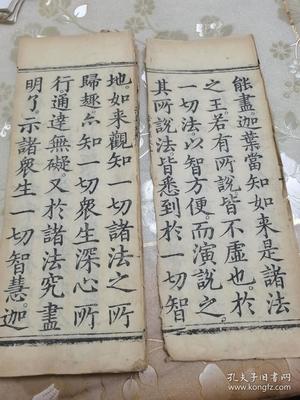 能盡迦葉當知如來是諸法
之王若有所說皆不虛也於
一切法以智方便而演說之
其所說法皆悉到於一切智
地。如來觀知一切諸法之所
歸趣亦知一切衆生深心所
行通達無礙。又於諸法究盡
明了示諸衆生一切智慧。迦
孔夫子旧书网
www.kongfz.com